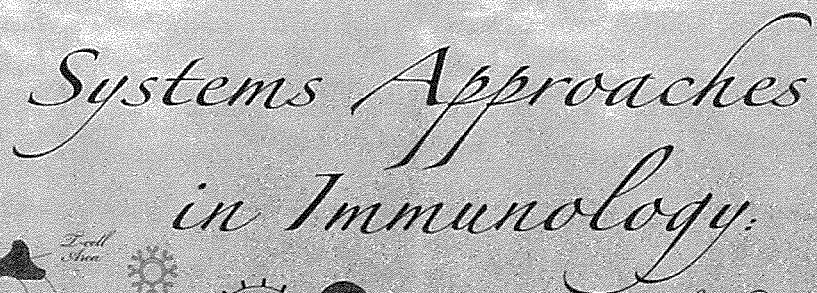 Systems Approaches
in Immunology:
T-cell
Area